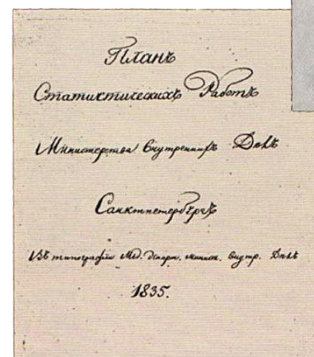 Планъ
Статистическихъ Работъ
Министерства Внутреннихъ Дѣлъ
Санктпетербургъ
Въ типографіи Мед. Департ. Минист. Внутр. Дѣлъ
1835.